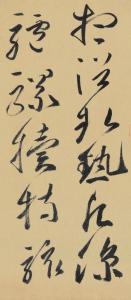 想浴執熱願涼
驢騾犢特駭